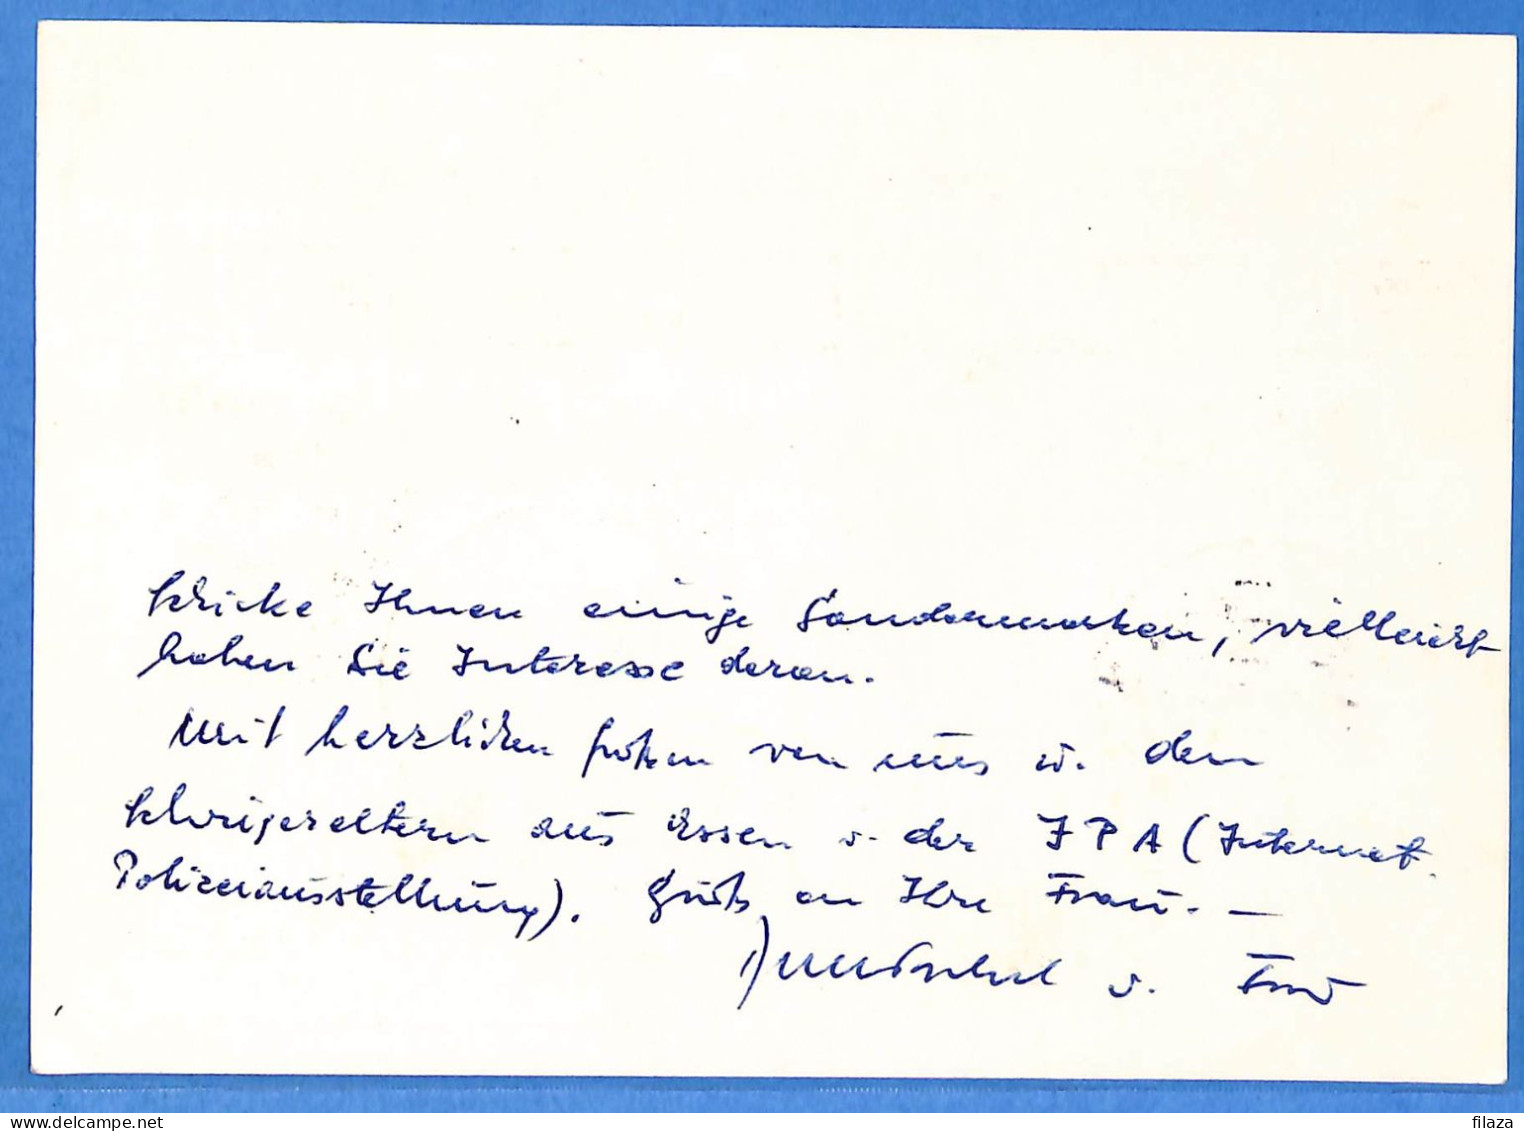 schicke Ihnen einige Sondermarken, vielleicht
haben Sie Interesse daran.
Mit herzlichen Grüßen von uns u. den
Schwiegereltern aus Essen u. der IPA (Internat.
Polizeiausstellung). Gruß an Ihre Frau. —
u. Frau
filaza